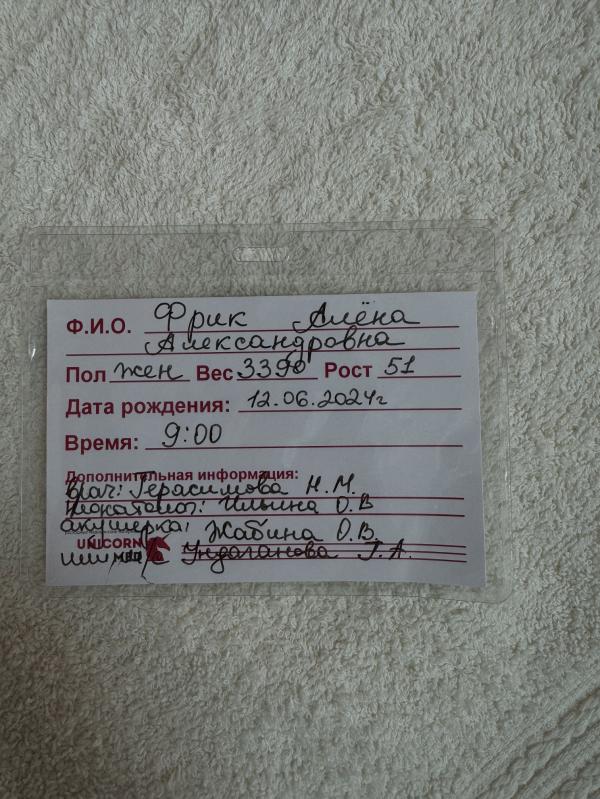 Ф.И.О. Фрик Алёна
Александровна
Пол жен Вес 3390 Рост 51
Дата рождения: 12.06.2024г
Время: 9:00
Дополнительная информация:
Врач: Герасимова Н.М.
Неонатолог: Ильина О.В
акушерка: Жабина О.В.
UNICORN
МЕД Г.А.